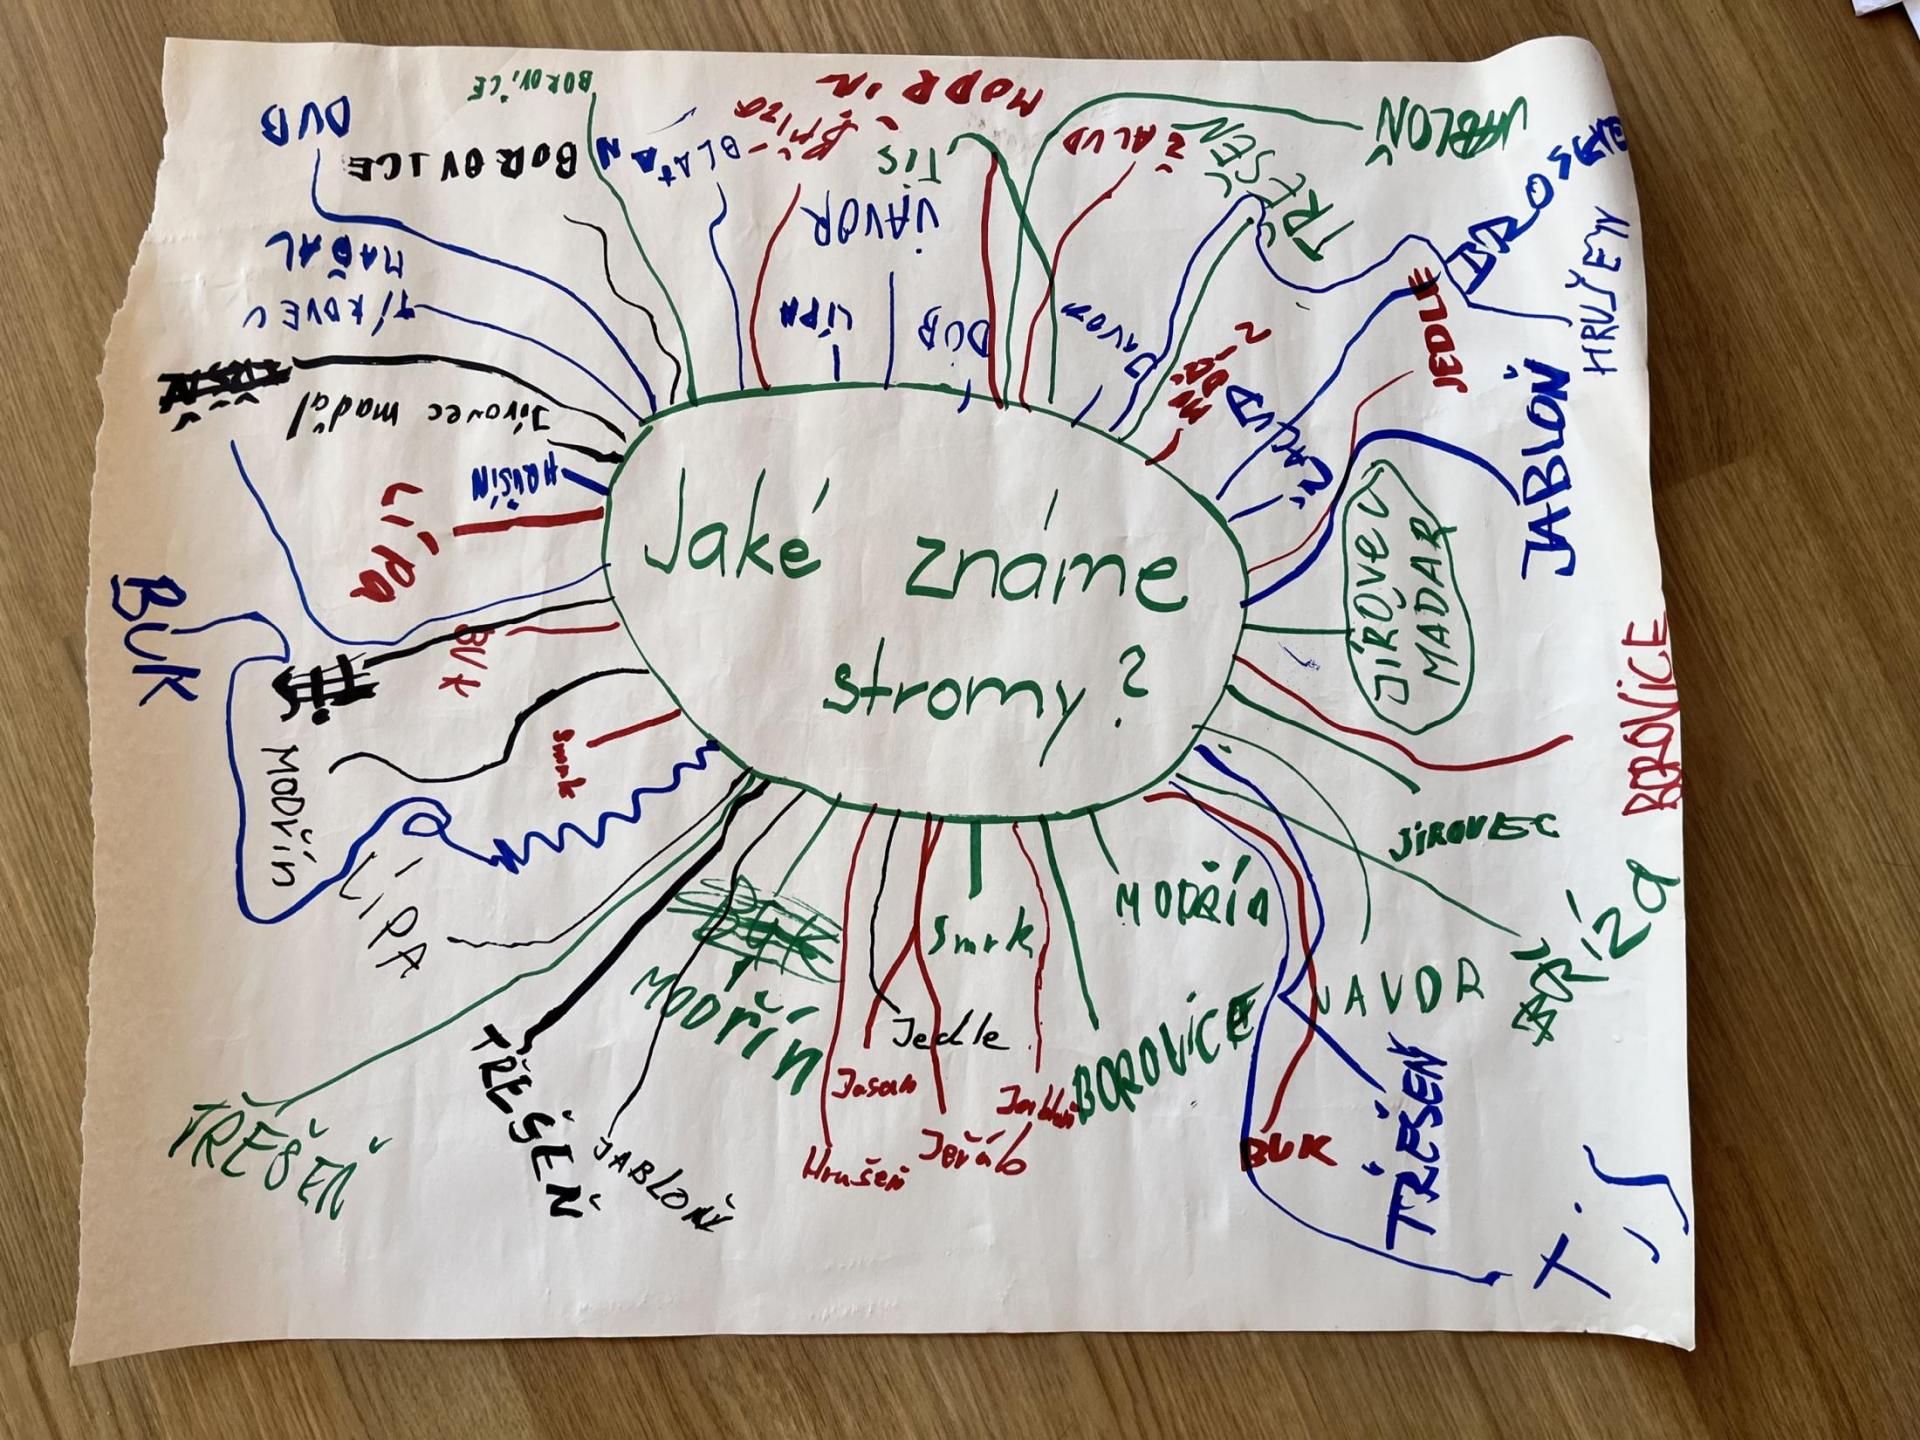 Jaké známe
stromy?
BOROVICE
DUB
BOROVICE
BŘÍZA
MODŘÍN
TIS
JAVOR
LÍPA
DUB
ŽALUD
TŘEŠEŇ
JABLOŇ
JAVOR
HRUŠEŇ
JEDLE
JABLOŇ
JÍROVEC
MADAR
BOROVICE
JÍROVEC
BŘÍZA
MODŘÍN
JAVOR
TŘEŠEŇ
TiS
BUK
BOROVICE
Smrk
Jedle
Jasan
Jeřáb
Hrušeň
MODŘÍN
JABLOŇ
TŘEŠEŇ
TŘEŠEŇ
LÍPA
MODŘÍN
Smrk
BUK
BUK
LÍPA
HRUŠÍN
Jírovec maďal
JÍROVEC
MAĎAL